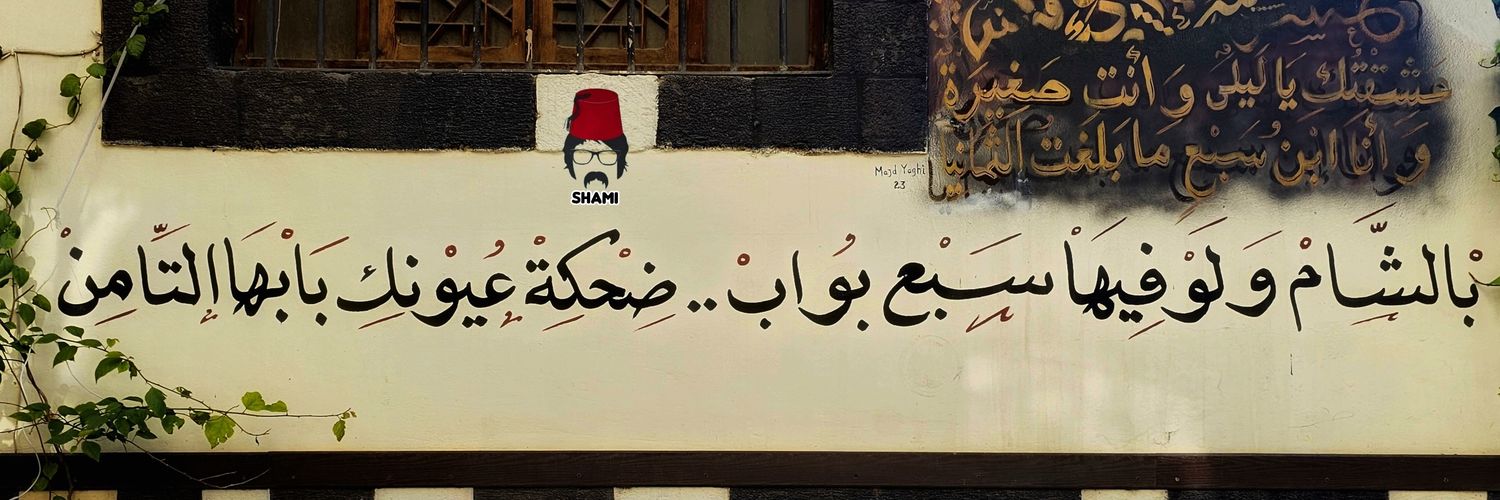 عَشِقْتُكِ يَا لَيْلَى وَأَنْتِ صَغِيرَةٌ
وَأَنَا ابْنُ سَبْعٍ مَا بَلَغْتُ الثَّمَانِيَا
Majd Yaghi
23
SHAMI
بْالشَّامْ وَلَوْ فِيهَاْ سَبْع بُوابْ .. ضِحْكِةْ عْيُوْنِكْ بَابْهَا التَّامِنْ